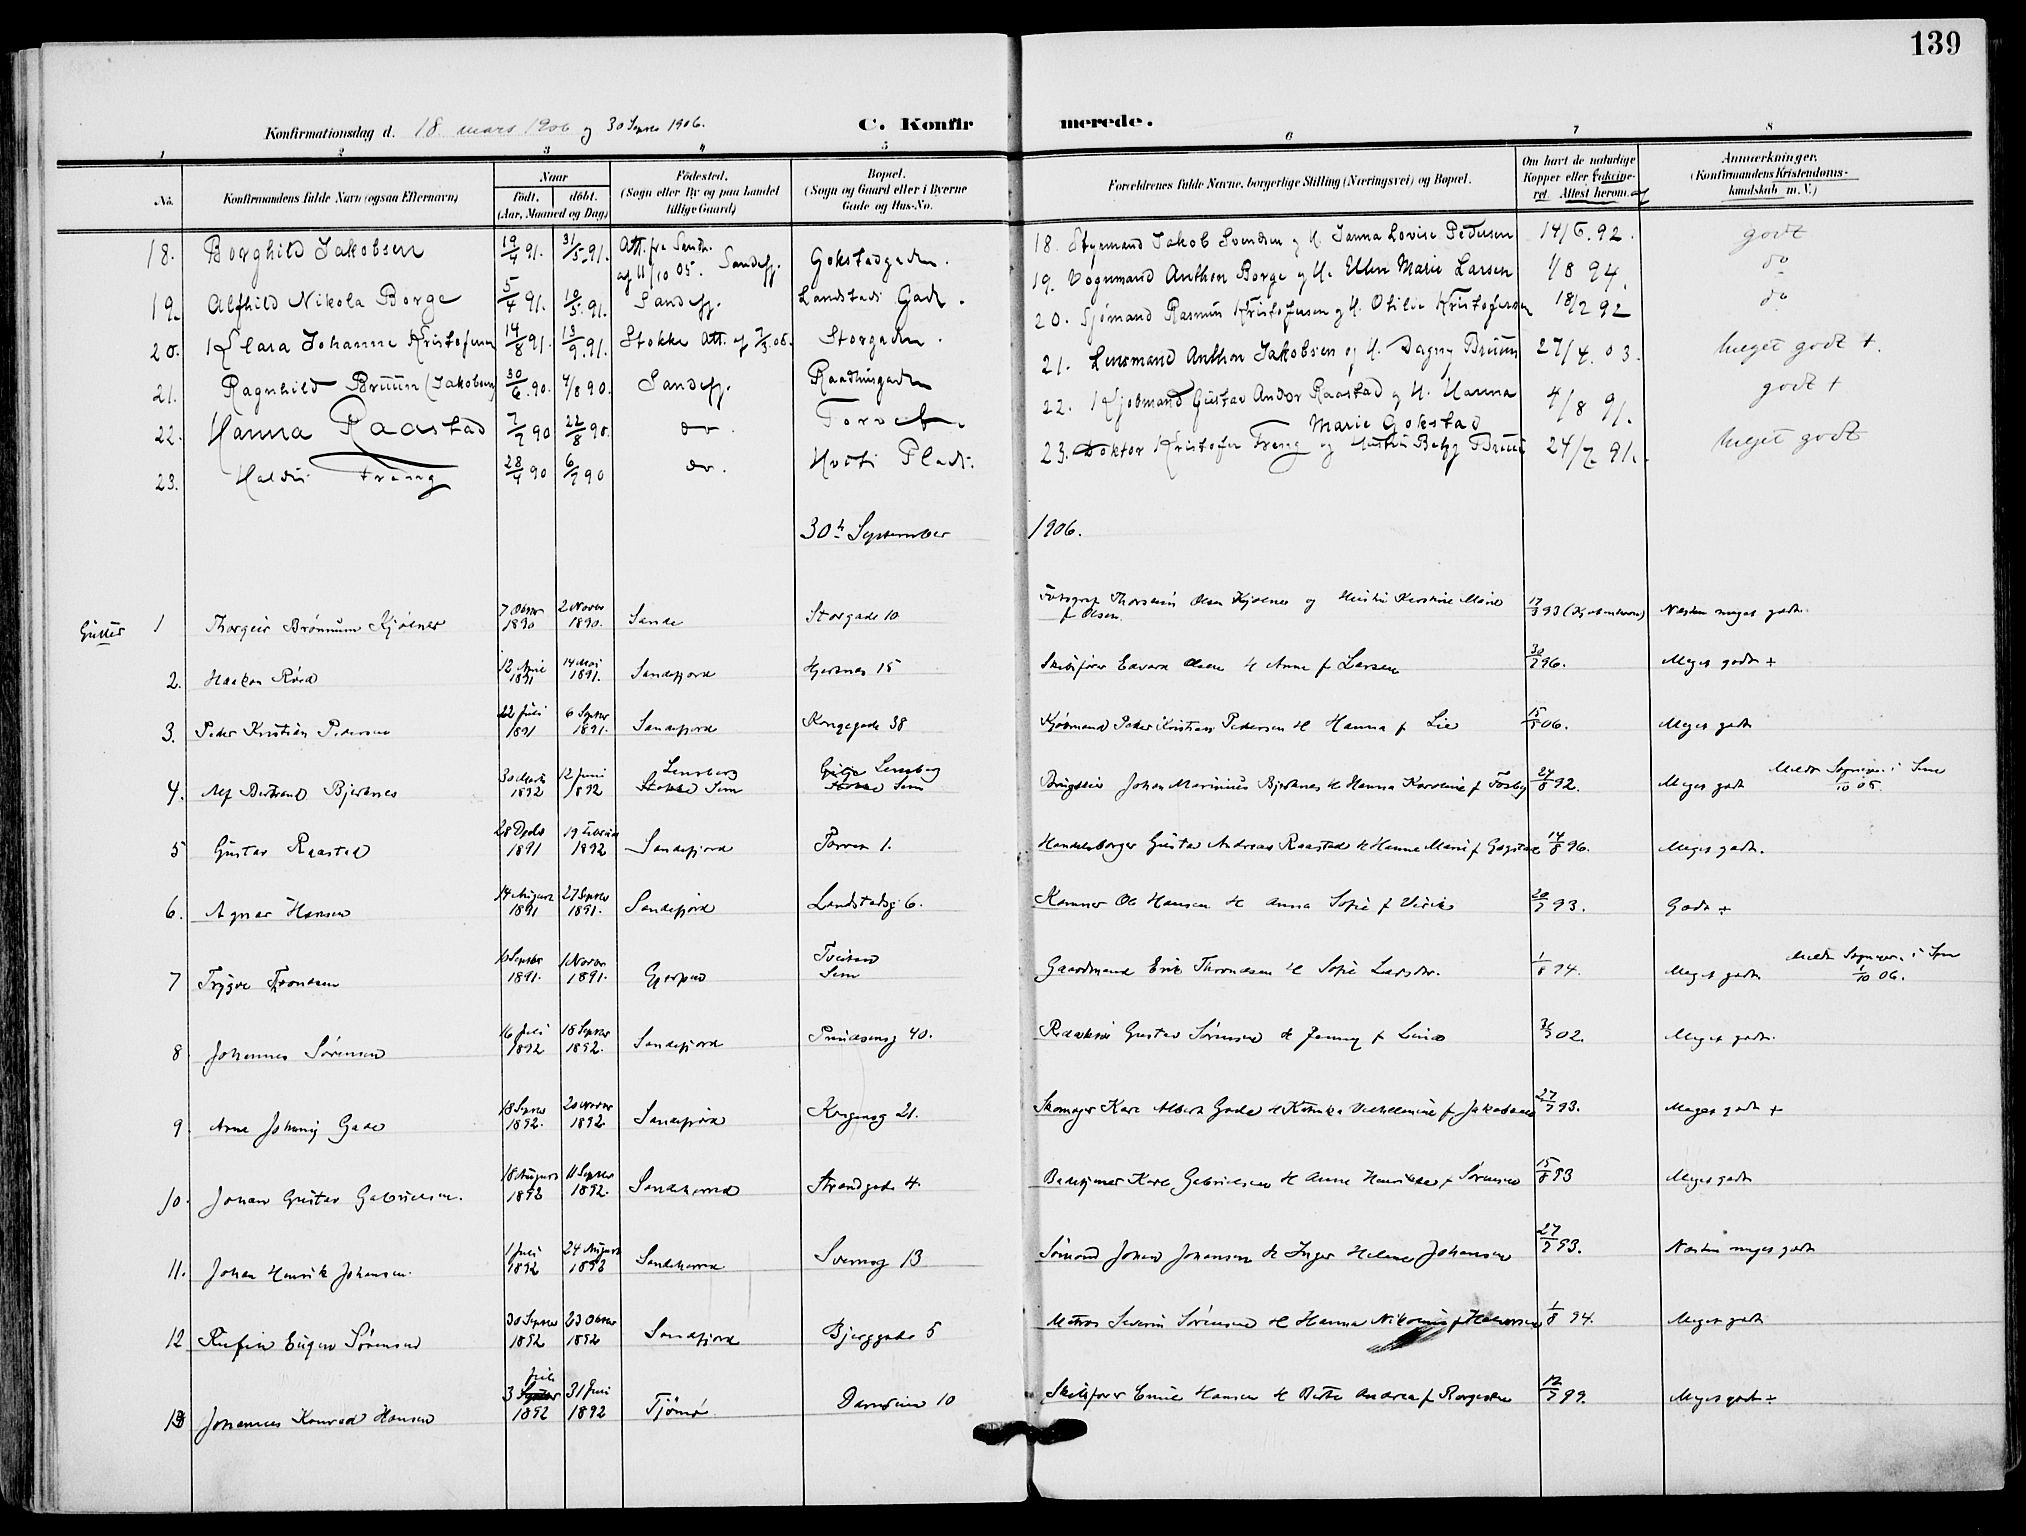 139
Konfirmationsdag d. 18 mars 1906 og 30 Septbr 1906.
C. Konfir merede.
1 2 3 4 5 6 7 8
No.
Konfirmandens fulde Navn (ogsaa Efternavn)
Naar
født. døbt.
(Aar, Maaned og Dag)
Fødested.
(Sogn eller By og paa Landet
tillige Gaard)
Bopæl.
(Sogn og Gaard eller i Byerne
Gade og Hus-No.
Forældrenes fulde Navne, borgerlige Stilling (Næringsvei) og Bopæl.
Om havt de naturlige
Kopper eller vakcine-
ret Attest herom.
Anmærkninger.
(Konfirmandens Kristendoms-
kundskab m. V.)
18. Borghild Jakobsen 19/4 91. 31/5 91. Att. fra Sandh. af 11/10 05. Sandefj. Gokstadgaden. 18. Styrmand Jakob Svendsen og H. Janna Lovise Pedersen 14/6. 92. godt
19. Alfhild Nikola Borge 5/4 91. 10/5. 91. Sandefj. Landstads Gade. 19. Vognmand Anthon Borge og H. Ellen Marie Larsen 1/8 94. do
20. Klara Johanne Kristofersen 14/8 91. 13/9. 91. Stokke Att. af 7/3. 06. Storgaden. 20. Sjømand Rasmus Kristofersen og H. Otilie Kristofersen 18/2 92 do
21. Ragnhild Bruun (Jakobsen) 30/6. 90. 4/8 90. Sandefj. Raadhusgaden 21. Lensmand Anthon Jakobsen og H. Dagny Bruun 27/4. 03. meget godt +.
22. Hanna Raastad 7/7 90 22/8 90. do. Torvet. 22. Kjøbmand Gustav Andor Raastad og H. Hanna Marie Gokstad 4/8 91. godt +
23. Haldis Freng 28/4 90 6/7 90 do. Hvits Plads. 23. Doktor Kristofer Freng og Hustru Betzy Bruun 24/7 91. meget godt
30te September 1906.
Gutter
1 Thorgeir Brønnum Kjølner 7 Oktbr 1890 2 Novbr 1890. Sande Storgade 10 Fotograf Thorstein Olsen Kjølner og Hustru Kirstine Marie f Olsen. 17/3 93 (Kjøbenhavn) Næsten meget godt.
2. Haakon Röed 12 April 1891 14 Mai 1891. Sandefjord Hjertnes 15 Skibsfører Edvard Olsen H Anne f Larsen 30/7 96. Meget godt +
3. Peder Kristian Pedersen 22 Juli 1891 6 Septbr 1891. Sandefjord Kongegade 38 Kjøbmand Peder Kristian Pedersen H Hanna f Lie 15/5 06. Meget godt
4. Alf Bertrand Bjerknes 30 Marts 1892 12 Juni 1892 Lensberg Stokke Sem Lensberg Stokke Sem Brugseier Johan Marinius Bjerknes H Hanna Karoline f Fosby 24/8 92. Meget godt Meldt Sognepr. i Sem 1/10 06.
5 Gustav Raastad 28 Decbr 1891 19 Februar 1892 Sandefjord Torvet 1. Handelsborger Gustav Andreas Raastad H Hanna Marie f Gogstad 14/8 96. Meget godt.
6. Agnar Hansen 14 August 1891 27 Septbr 1891. Sandefjord Landstadsg 6. Kemner Ole Hansen H Anna Sofie f Virik 20/7 93. Godt +
7 Trygve Trondsen 10 Septbr 1891. 1 Novbr 1891. Gjerpen Tveitan Sem Gaardmand Erik Throndsen H Sofie Larsdtr. 1/8 94. Meget godt. Meldt Sognepr. i Sem 1/10 06.
8 Johannes Sørensen 16 Juli 1892 18 Septbr 1892. Sandefjord Prindsensg 40. Redaktør Gustav Sørensen H Jenny f Lund 31/3 02. Meget godt.
9 Arne Johanny Gade 18 Septbr 1892. 20 Novbr 1892 Sandefjord Kongensg 21. Skomager Karl Albert Gade H Katinka Vilhelmine f Jakobsen 27/7 93. Meget godt +
10. Johan Gustav Gabrielsen. 18 August 1892 11 Septbr 1892. Sandeherred Strandgade 4. Badetjener Karl Gabrielsen H Anne Henrikke f Sørensen 15/8 93 Meget godt
11. Johan Henrik Johansen. 1 Juli 1892 24 August 1892 Sandeherred Svensg 13 Sømand Johan Johansen H Inger Helene Johansen 27/7 93. Næsten meget godt
12 Rufin Eugen Sørensen 30 Septbr 1892 23 Oktbr 1892 Sandefjord Bjerggade 5 Matros Severin Sørensen H Hanna Nikoline f Halvorsen 1/8 94. Meget godt
13 Johannes Konrad Hansen 3 Juli 1892 31 Juli 1892 Tjømø Dronningens 10 Skibsfører Emil Hansen H Berthe Andrea f Borgesen 12/5 99. Meget godt +